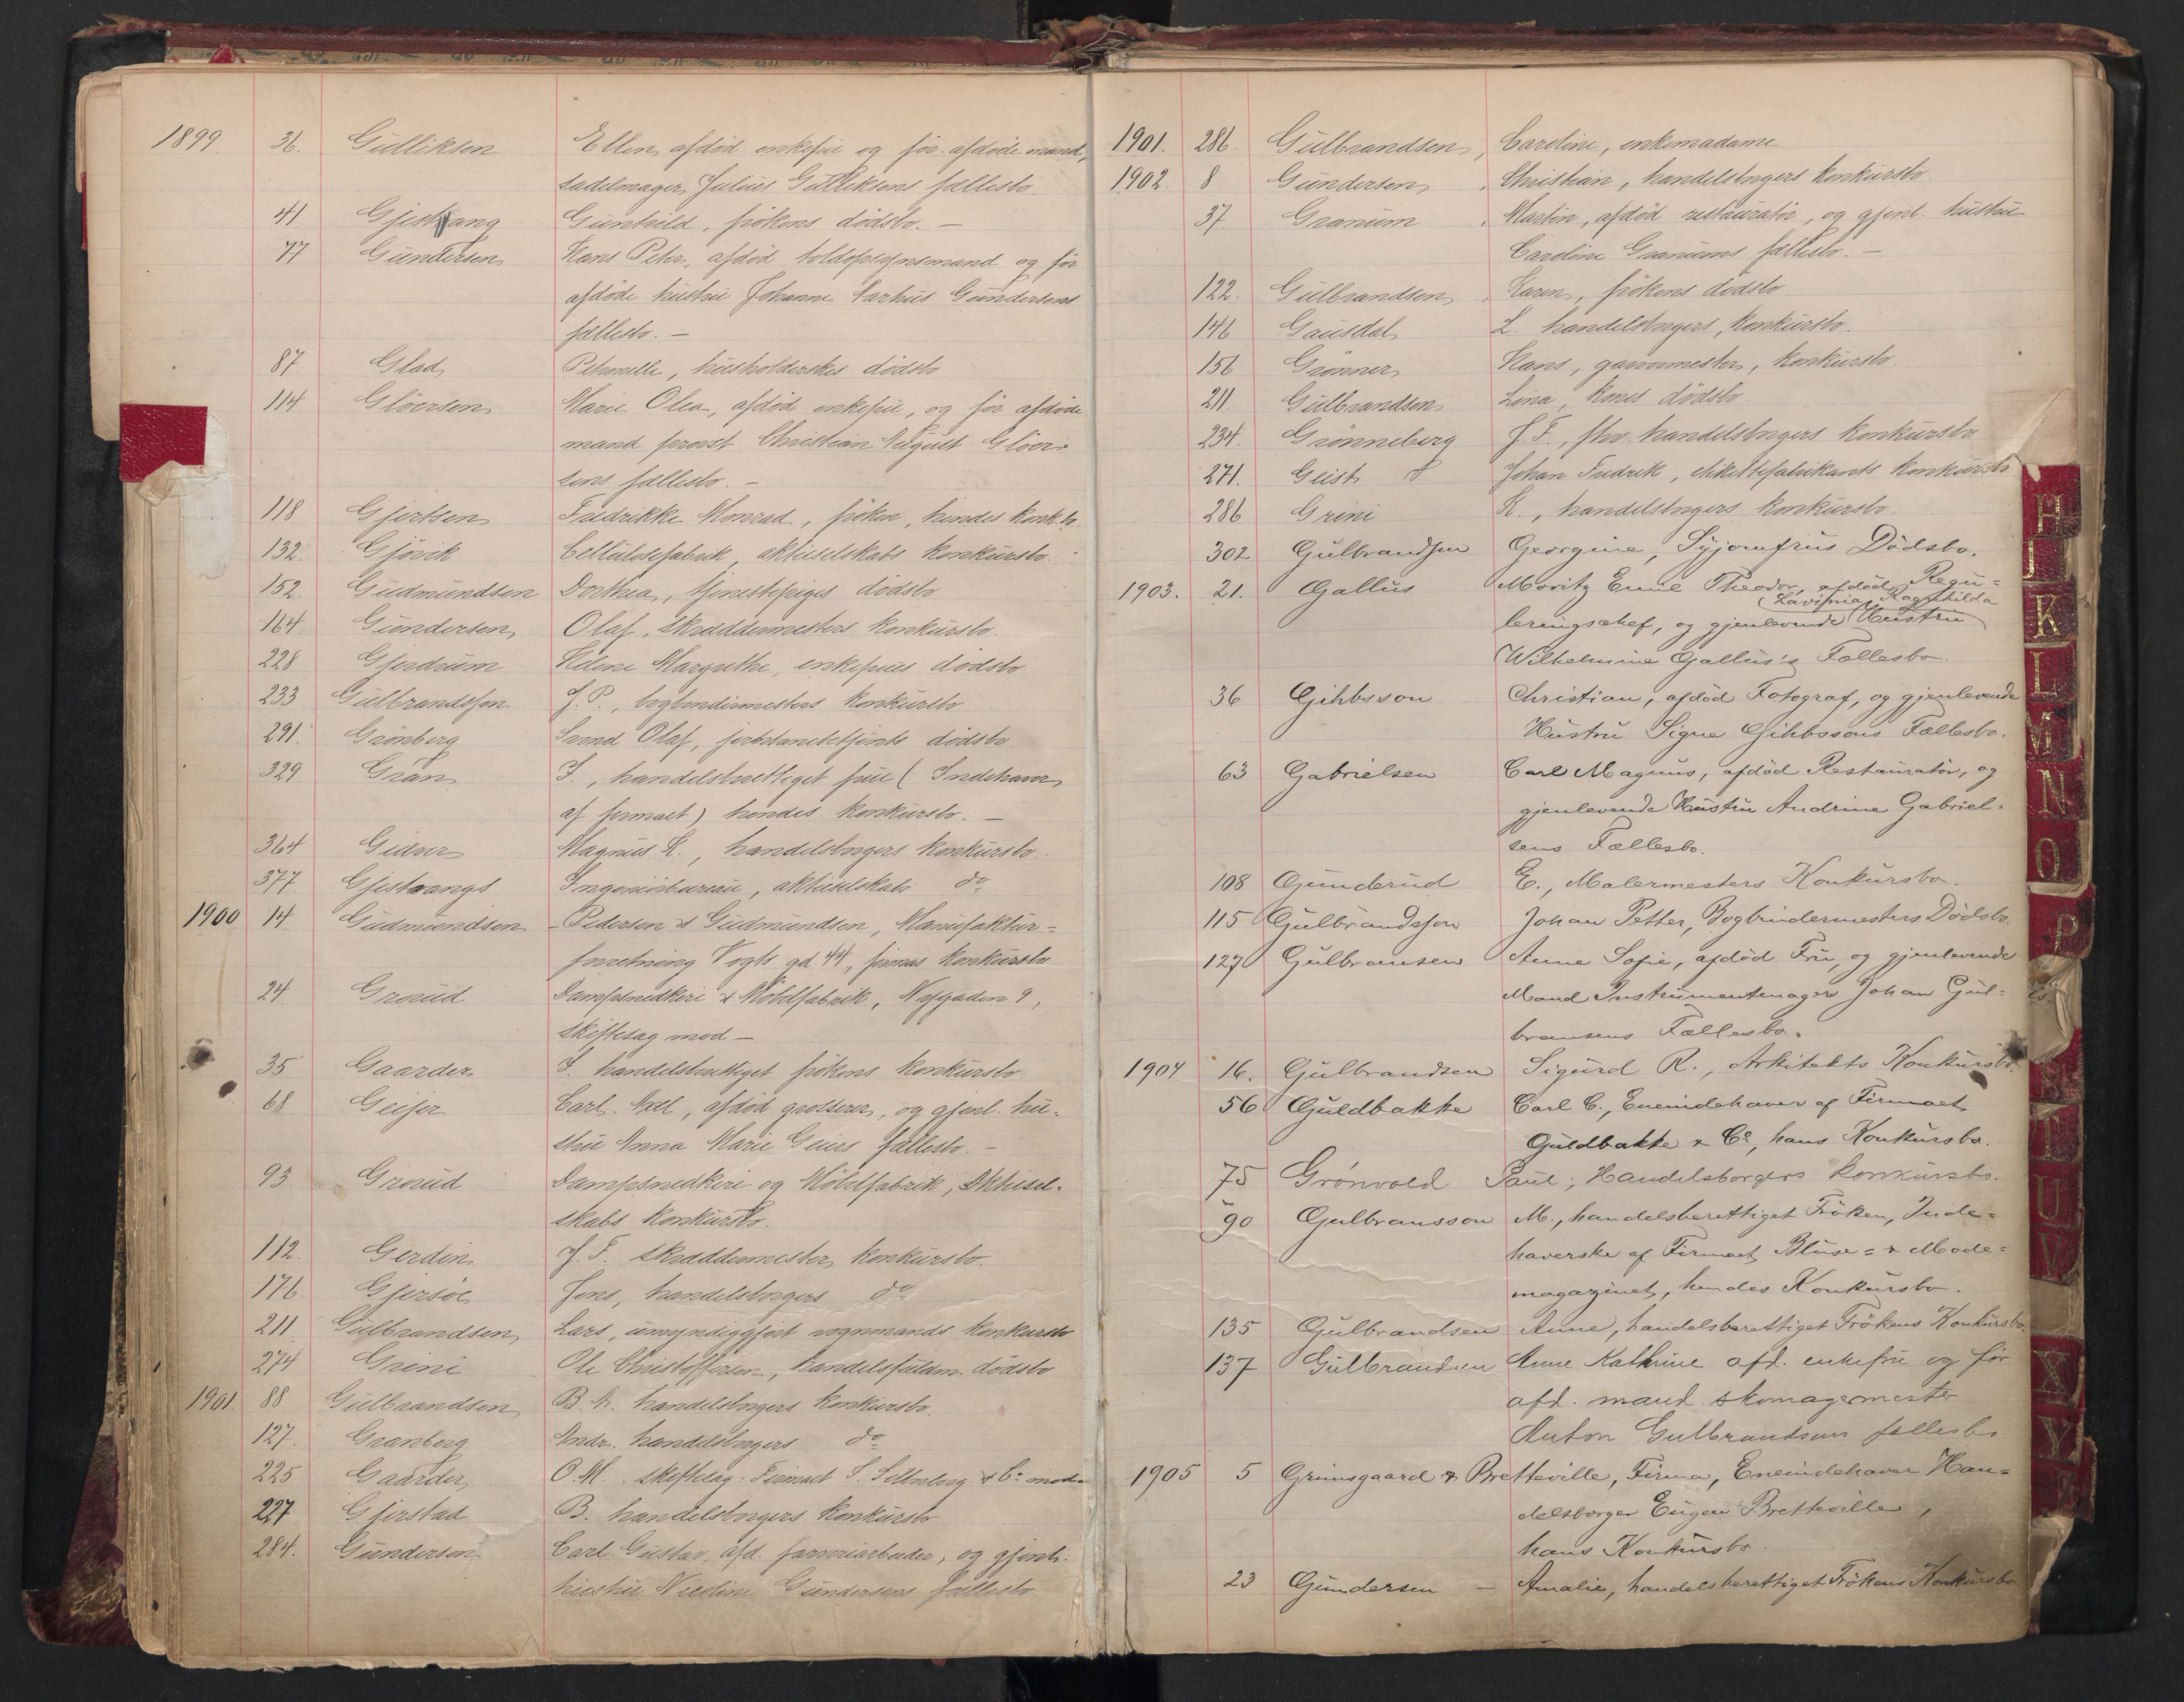 1899. 36. Gulliksen Ellen, afdød enkefru og før afdøde mand,
sadelmager Julius Gulliksens fællesbo.
41 Gjestvang Gunhild, frökens dödsbo. —
77 Gundersen Hans Peter, afdöd toldopsynsmand og för
afdöde hustru Johanne Markus Gundersens
fællesbo. —
87 Glad Petronelle, husholderskes dödsbo
114 Glöersen Marie Olea, afdöd enkefru, og för afdöde
mand provst Christian August Glöer-
sens fællesbo. —
118 Gjertsen Fredrikke Monrad, fröken, hendes konk.bo.
132. Gjövik Cellulosefabrik, aktieselskabs konkursbo
152. Gudmundsen Dorthea, tjenestepiges dödsbo
164. Gundersen Olaf, skræddermesters konkursbo.
228 Gjerdrum Helene Margrethe, enkefrues dödsbo
233 Gulbrandssøn J. P., bogbindermesters konkursbo
291. Grönberg Svend Olaf, dödsbo.
329 Gran I., handelsberettiget frue (Indehaver
af firmaet) hendes konkursbo. —
364 Gidver Magnus K., handelsborgers konkursbo.
377 Gjestvangs Ingeniörbureau, aktieselskab do
1900 14 Gudmundsen - Pedersen & Gudmundsen, Manufaktur-
forretning Vogts gd. 44, firmas konkursbo
24 Groud Dampsnedkeri & Möbelfabrik, 9,
skiftesag mod —
35 Gaarder I. handelsberettiget frökens konkursbo
68 Geijer Carl Axel, afdöd grosserer, og gjenl. hu-
stru Anna Marie Geiers fællesbo. —
93 Groud Dampsnedkeri og Möbelfabrik, Aktiesel-
skabs konkursbo.
112. Gerdin J. F. skræddermester, konkursbo.
176. Gjersöe Jens, handelsborgers do
211 Gulbrandsen Lars, umyndiggjort vognmands konkursbo
274 Grini Ole Christoffersen, handelsfuldm. dödsbo
1901 88 Gulbrandsen B. A. handelsborgers konkursbo.
127. Granberg Andr. handelsborgers do
225 Gaarder O. M. skiftesag: Firmaet S. & Co mod
227 Gjerstad B. handelsborgers konkursbo
284. Gundersen Carl Gustav, afd. farveriarbeider, og gjenl.
hustru Gundersens fællesbo
1901. 286. Gulbrandsen, Caroline, enkemadame
1902. 8 Gundersen, Christian, handelsborgers konkursbo.
37. Granum, Martin, afdöd restauratör, og gjenl. hustru
Caroline Granums fællesbo. —
122. Gulbrandsen, Karen, frökens dödsbo
146 Gausdal L. handelsborgers, konkursbo.
156 Grönner Hans, garvermester, konkursbo.
211. Gulbrandsen Lina, kones dödsbo
234. Grönneberg J. F., fhv. handelsborgers konkursbo
271. Geist Johan Fredrik, etikettefabrikants konkursbo
286 Grini K., handelsborgers konkursbo.
302 Gulbrandsen Georgine, Syjomfrus Dödsbo.
1903. 21. Gallus Moritz Emil Theodor, afdöd Regu-
Ragnhilda
leringschef, og gjenlevende Hustru
Wilhelmine Gallus's Fællesbo.
36 Gihbsson Christian, afdöd Fotograf, og gjenlevende
Hustru Signe Gihbssons Fællesbo.
63 Gabrielsen Carl Magnus, afdöd Restauratör, og
gjenlevende Hustru Andrine Gabriel-
sens Fællesbo.
108 Gunderud E., Malermesters Konkursbo.
115 Gulbrandson Johan Petter, Bogbindermesters Dödsbo.
127 Gulbransen Anne Sofie, afdöd Fru, og gjenlevende
Mand Instrumentmager Johan Gul-
bransens Fællesbo.
1904 16. Gulbrandsen Sigurd R., Arkitekts Konkursbo.
56 Guldbakke Carl C., Eneindehaver af Firmaet
Guldbakke & Co, hans Konkursbo.
75 Grönvold Paul, Handelsborgers konkursbo.
90 Gulbransson M., handelsberettiget Fröken, Inde-
haverske af Firmaet Bluse- & Mode-
magazinet, hendes Konkursbo.
135 Gulbrandsen Anne, handelsberettiget Frökens Konkursbo.
137 Gulbrandsen Anne Kathrine afd. enkefru og för
afd. mand skomagermester
Anton Gulbrandsens fællesbo
1905 5 Grimsgaard & Bretteville, Firma, Eneindehaver Han-
delsborger Eugen Bretteville,
hans Konkursbo.
23 Gundersen — Amalie, handelsberettiget Frökens Konkursbo.
H
J
K
L
M
N
O
P
S
T
U
V
X
Y